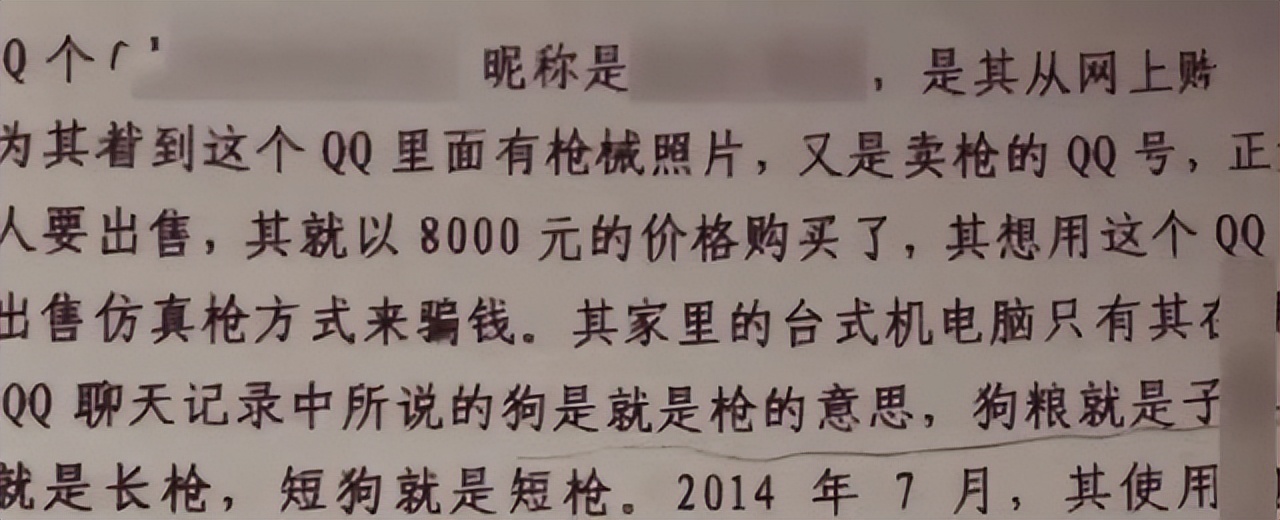 Q 个 昵称是 ，是其从网上购
为其着到这个 QQ 里面有枪械照片，又是卖枪的 QQ 号，正
人要出售，其就以 8000 元的价格购买了，其想用这个 QQ
出售仿真枪方式来骗钱。其家里的台式机电脑只有其在
QQ 聊天记录中所说的狗是就是枪的意思，狗粮就是子
就是长枪，短狗就是短枪。2014 年 7 月，其使用